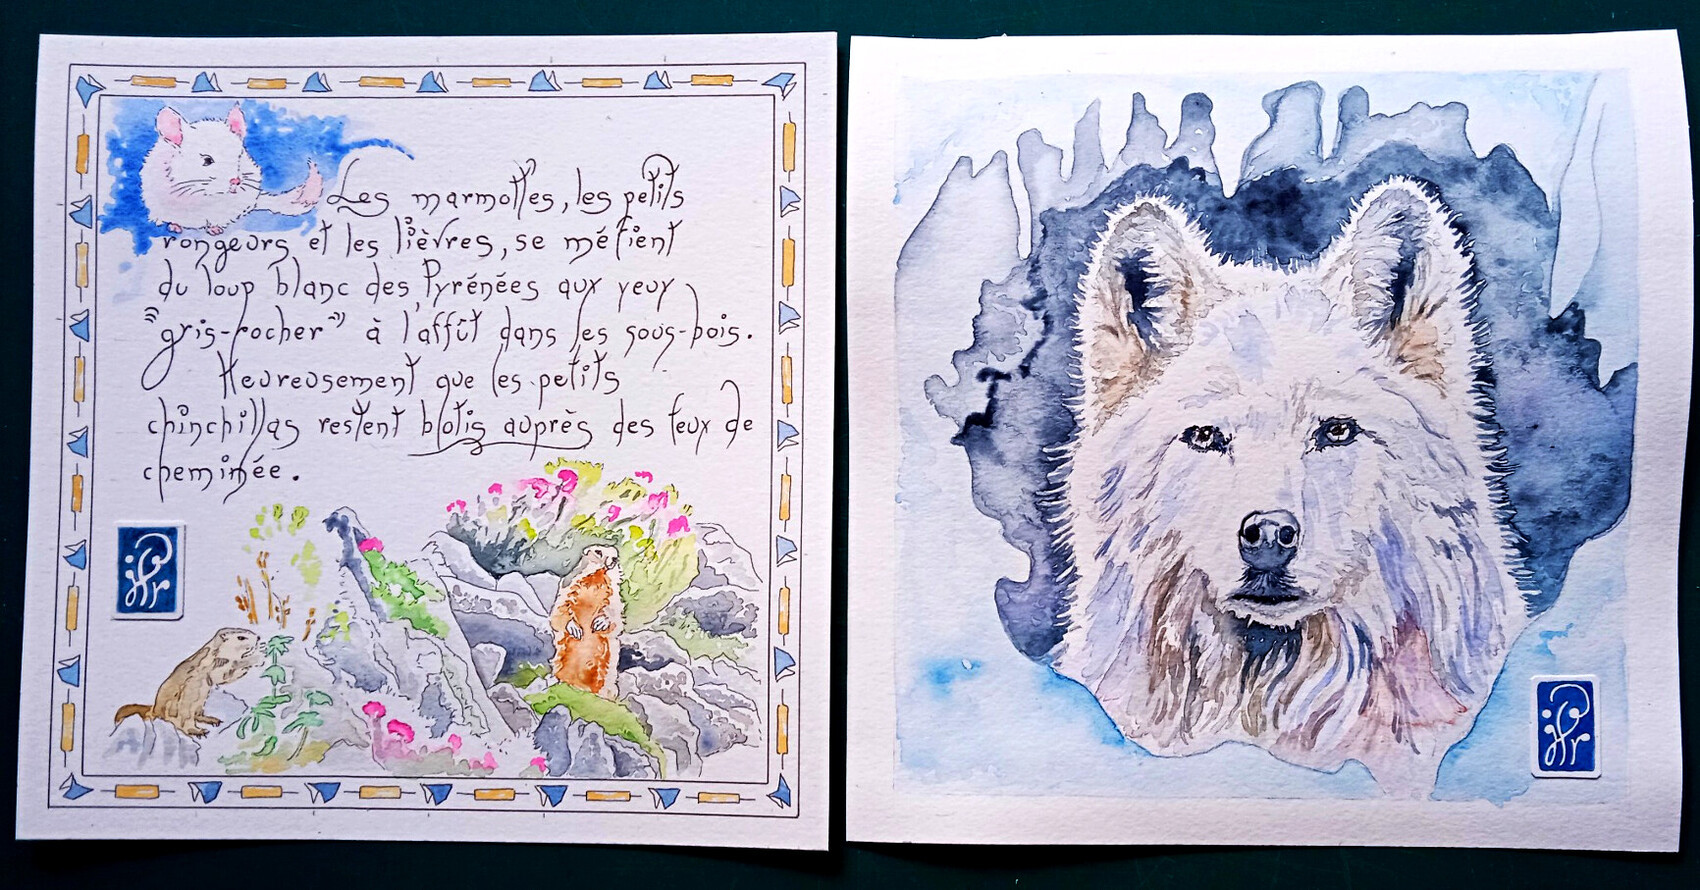 Les marmottes, les petits
rongeurs et les lièvres, se méfient
du loup blanc des Pyrénées aux yeux
"gris-rocher" à l'affût dans les sous-bois.
Heureusement que les petits
chinchillas restent blotis auprès des feux de
cheminée.